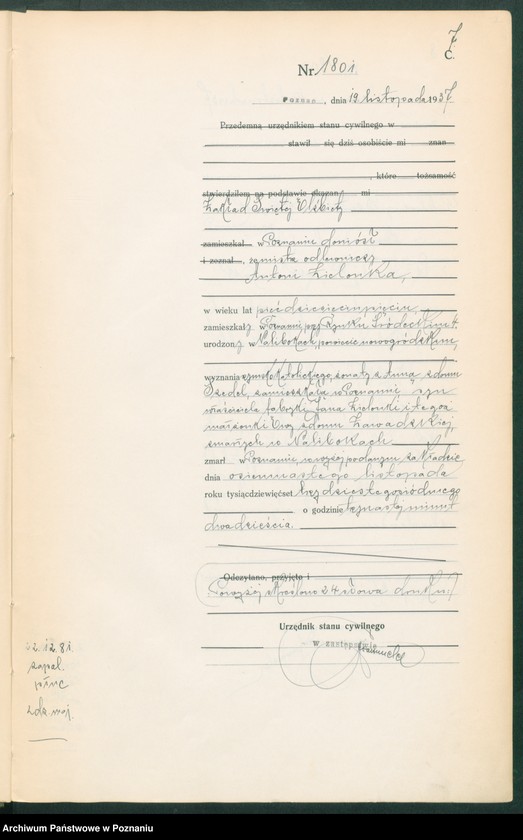 7
C.
Nr. 1801.
Poznań, dnia 19 listopada 1937.
Przedemną urzędnikiem stanu cywilnego w
stawił się dziś osobiście mi znan
, które tożsamość
stwierdziłem na podstawie okazan mi
Zakład Świętej Elżbiety
zamieszkał w Poznaniu doniósł
i zeznał, że mistrz odlewniczy
Antoni Zielonka,
w wieku lat pięćdziesięciupięciu,
zamieszkały w Poznaniu, przy Rynku Śródeckim 4.
urodzony w Nalibokach, powiecie nowogródzkim,
wyznania rzymsko katolickiego, żonaty z Anną z domu
Szedel, zamieszkałą w Poznaniu syn
właściciela fabryki Jana Zielonki i tegoż
małżonki Ewy z domu Zawadzkiej,
zmarłych w Nalibokach
zmarł w Poznaniu, w wyżej podanym zakładzie
dnia osiemnastego listopada
roku tysiącdziewięćset trzydziestego siódmego
o godzinie minut
dwadzieścia.
Odczytano, przyjęto i
Powyżej skreślono 24 słowa druku.
Urzędnik stanu cywilnego
w zastępstwie
2.12.81.
zapal.
płuc
Archiwum Państwowe w Poznaniu